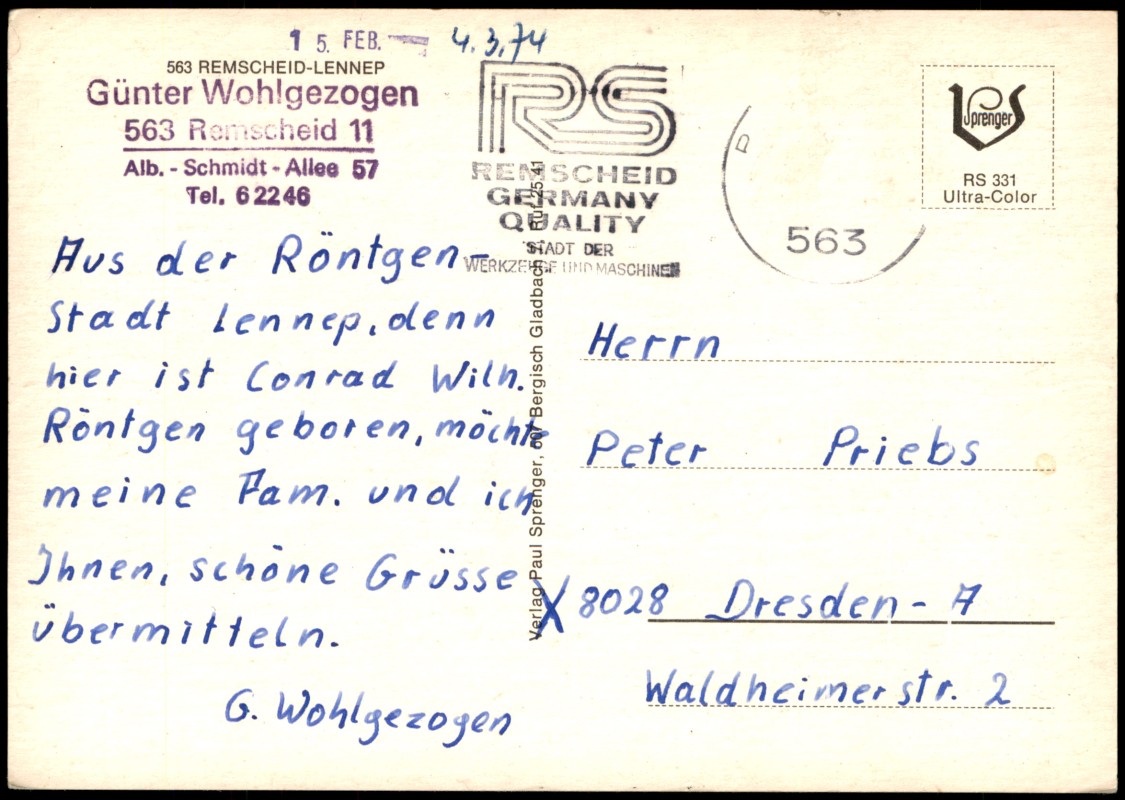 1 5. FEB.
4.3.74
563 REMSCHEID-LENNEP
Günter Wohlgezogen
563 Remscheid 11
Alb. - Schmidt - Allee 57
Tel. 6 22 46
RS
REMSCHEID
GERMANY
QUALITY
STADT DER
WERKZEUGE UND MASCHINEN
563
Sprenger
RS 331
Ultra-Color
Aus der Röntgen-
Stadt Lennep, denn
hier ist Conrad Wilh.
Röntgen geboren, möchte
meine Fam. und ich
Ihnen, schöne Grüsse
übermitteln.
G. Wohlgezogen
Verlag Paul Sprenger, 507 Bergisch Gladbach, Ruf 25141
Herrn
Peter Priebs
X 8028 Dresden - A
Waldheimerstr. 2